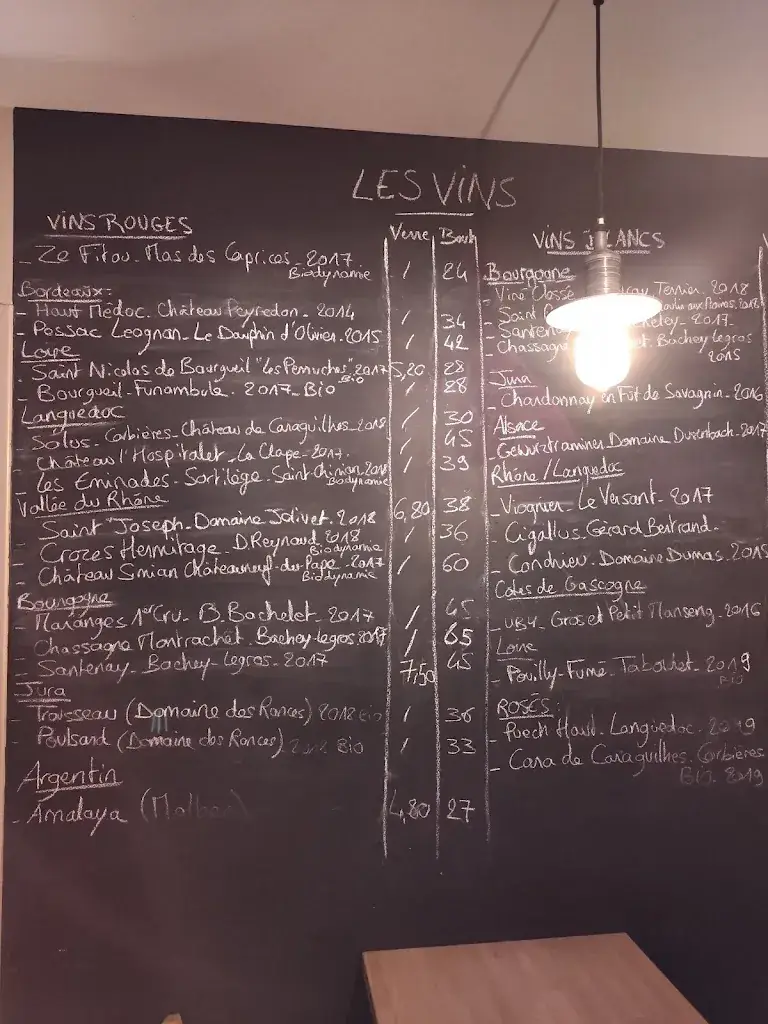 LES VINS
VINS ROUGES
Verre Bout
- Ze Fitou. Mas des Caprices - 2017 / 24
Biodynamie
Bordeaux:
- Haut Médoc. Château Peyredon. 2014 / 34
- Pessac Leognan - Le Dauphin d'Olivier. 2015 / 42
Loire
- Saint Nicolas de Bourgueil "Les Perruches" 2017 5,20 28
Bio
- Bourgueil. Funambule. 2017 Bio / 28
Languedoc
- Solus - Corbières - Château de Caraguilhes - 2018 / 30
- Château l'Hospitalet. La Clape - 2017. / 45
- Les Eminades - Sortilège. Saint-Chinian. 2018 / 39
Biodynamie
Vallée du Rhône
- Saint Joseph - Domaine Jolivet. 2018 6,80 38
- Crozes Hermitage - D. Reynaud 2018 / 36
Biodynamie
- Château Simian Châteauneuf-du-Pape. 2017 / 60
Biodynamie
Bourgogne
- Maranges 1er Cru - B. Bachelet - 2017 / 45
- Chassagne Montrachet. Bachey-legros. 2017 / 65
- Santenay - Bachey-Legros - 2017 7,50 45
Jura
- Trousseau (Domaine des Ronces) 2018 Bio / 36
- Poulsard (Domaine des Ronces) Bio / 33
Argentin
- Amalaya (Malbec) 4,80 27
VINS BLANCS
Bourgogne
- Viré Clessé Terrier. 2018
- Saint
- Santenay 2017
- Chassagne Bachey-legros
2015
Jura
- Chardonnay en Fût de Savagnin - 2016
Alsace
- Gewurztraminer Domaine 2017
Rhône / Languedoc
- Viognier - Le Versant - 2017
- Cigallus. Gérard Bertrand.
- Condrieu. Domaine Dumas. 2015
Cotes de Gascogne
- UBY. Gros et Petit Manseng. 2016
Loire
- Pouilly-Fumé - Tabordet - 2019
Bio
ROSÉS:
- Puech Haut. Languedoc. 2019
- Cara de Caraguilhes. Corbières
BIO. 2019